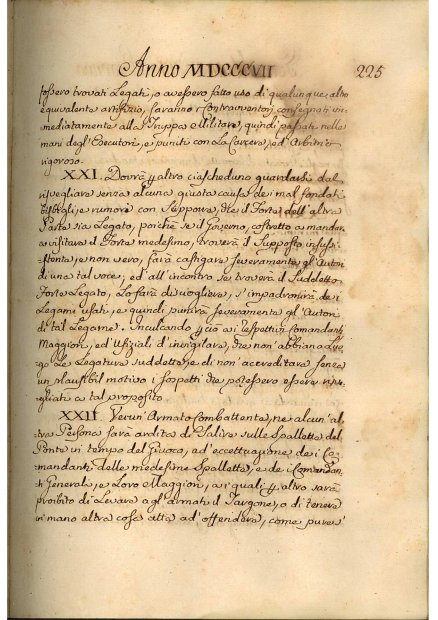 Anno MDCCCVII 225
fossero trovati Legati, o avessero fatto uso di qualunque altro
equivalente artifizio, saranno i Contravventori consegnati im-
mediatamente alla Truppa Militare, quindi passati nelle
mani degl'Esecutori, e puniti con La Carcere, ed Arbitrio
rigoroso.
XXI. Dovrà p altro ciascheduno guardarsi dal
risvegliare senza alcuna giusta causa dei mal fondati
bisbigli, e rumori con Supporre, che il Forte dell'altra
Parte sia Legato, poichè se il Governo, costretto a mandare
a visitare il Forte medesimo, troverà il Supposto insussi-
stente, e non vero, farà castigare severamente gl'Autori
di una tal voce, ed all'incontro se troverà il Suddetto
Forte Legato, Lo farà disciogliere, s'impadronirà dei
Legami usati, e quindi punirà severamente gl'Autori
di tal Legame. Inculcando p ciò ai respettivi Comandanti
Maggiori, ed Ufiziali d'invigilare, che non abbiano Luo-
go Le Legature suddette, e di non accreditare senza
un plausibil motivo i sospetti che potessero essere risve-
gliati a tal proposito.
XXII. Verun'Armato Combattente, ne alcun'al-
tra Persona sarà ardita di Salire sulle Spallette del
Ponte in tempo del Giuoco, ad eccettuazione dei Co-
mandanti delle medesime Spallette, e dei Comandan-
ti Generali, e Loro Maggiori, ai quali p altro sarà
proibito di Levare agl'armati il Targone, o di tenere
in mano altra cosa atta ad'offendere, come pure